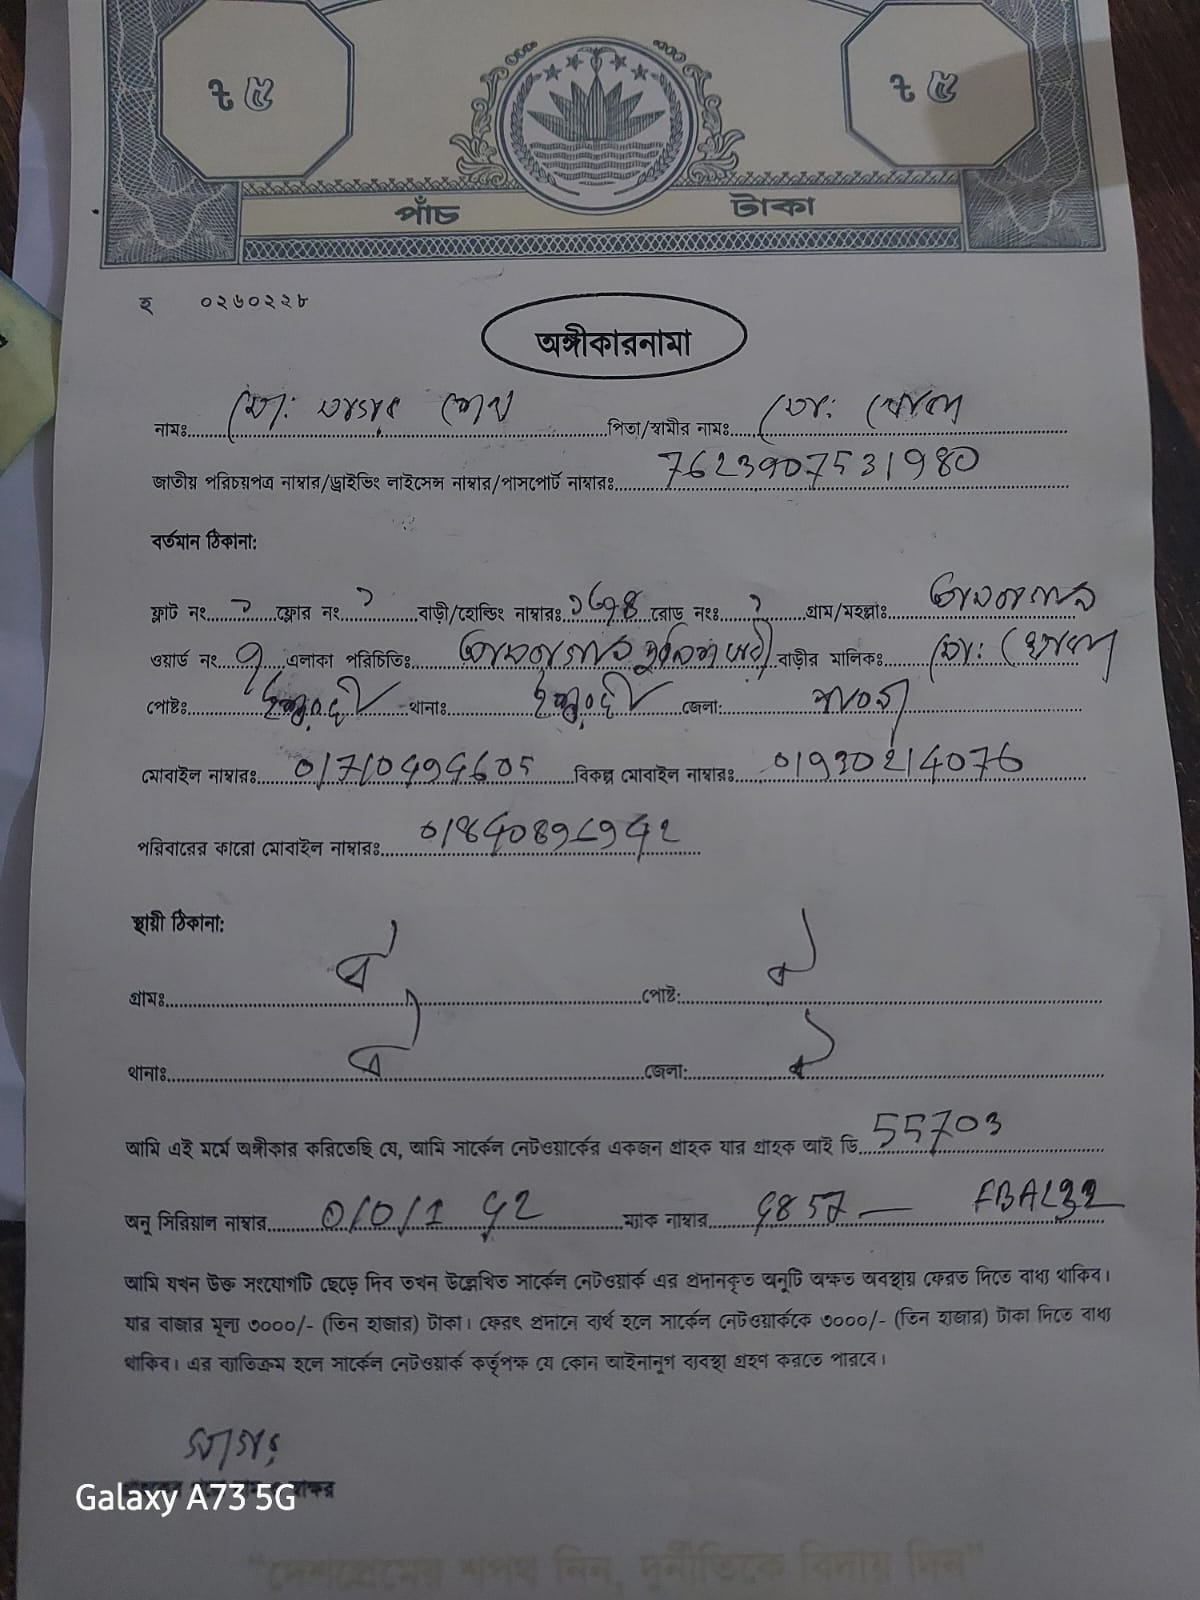 ৳ ৫ ৳ ৫
পাঁচ টাকা
হ ০২৬০২২৮
অঙ্গীকারনামা
নামঃ মোঃ সাগর শেখ পিতা/স্বামীর নামঃ মোঃ
জাতীয় পরিচয়পত্র নাম্বার/ড্রাইভিং লাইসেন্স নাম্বার/পাসপোর্ট নাম্বারঃ 7623907531980
বর্তমান ঠিকানা:
ফ্লাট নং ফ্লোর নং বাড়ী/হোল্ডিং নাম্বারঃ রোড নংঃ গ্রাম/মহল্লাঃ
ওয়ার্ড নং ৭ এলাকা পরিচিতিঃ বাড়ীর মালিকঃ মোঃ
পোষ্টঃ ঈশ্বরদী থানাঃ ঈশ্বরদী জেলা: পাবনা
মোবাইল নাম্বারঃ বিকল্প মোবাইল নাম্বারঃ 01930214076
পরিবারের কারো মোবাইল নাম্বারঃ
স্থায়ী ঠিকানা:
গ্রামঃ ঐ পোষ্ট: ঐ
থানাঃ ঐ জেলা: ঐ
আমি এই মর্মে অঙ্গীকার করিতেছি যে, আমি সার্কেল নেটওয়ার্কের একজন গ্রাহক যার গ্রাহক আই ডি 55703
অনু সিরিয়াল নাম্বার ম্যাক নাম্বার
আমি যখন উক্ত সংযোগটি ছেড়ে দিব তখন উল্লেখিত সার্কেল নেটওয়ার্ক এর প্রদানকৃত অনুটি অক্ষত অবস্থায় ফেরত দিতে বাধ্য থাকিব।
যার বাজার মূল্য ৩০০০/- (তিন হাজার) টাকা। ফেরৎ প্রদানে ব্যর্থ হলে সার্কেল নেটওয়ার্ককে ৩০০০/- (তিন হাজার) টাকা দিতে বাধ্য
থাকিব। এর ব্যতিক্রম হলে সার্কেল নেটওয়ার্ক কর্তৃপক্ষ যে কোন আইনানুগ ব্যবস্থা গ্রহণ করতে পারবে।
সাগর
Galaxy A73 5G
"দেশপ্রেমের শপথ নিন, দুর্নীতিকে বিদায় দিন"